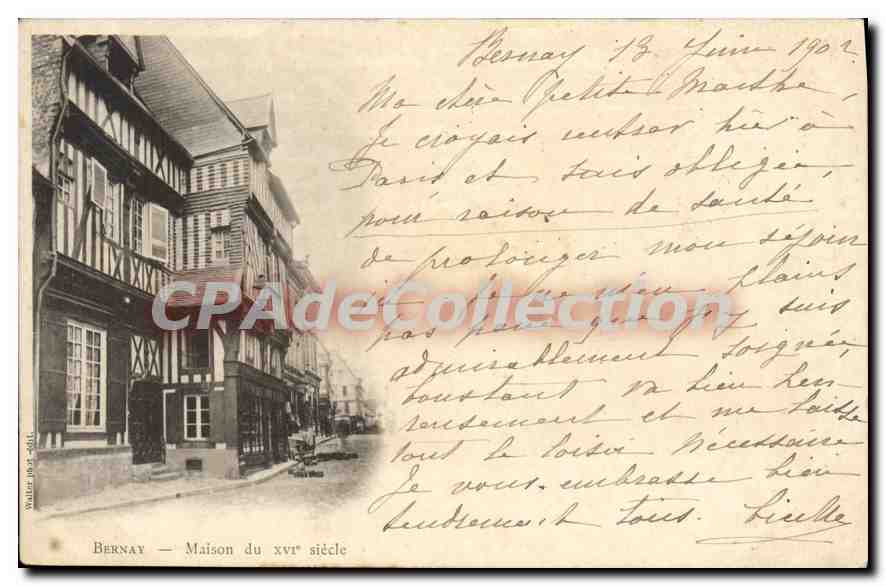 Bernay 13 Juin 1902.
Ma chère petite Marthe,
Je croyais rentrer hier à
Paris et suis obligée,
pour raison de santé
de prolonger mon séjour
ici. Je ne m'en plains
pas parce que j'y suis
admirablement soignée,
Constant va bien heu-
reusement et me laisse
tout le loisir nécessaire
Je vous embrasse bien
tendrement tous.
CPAdeCollection.com
Walter phot.-édit.
BERNAY — Maison du XVIe siècle